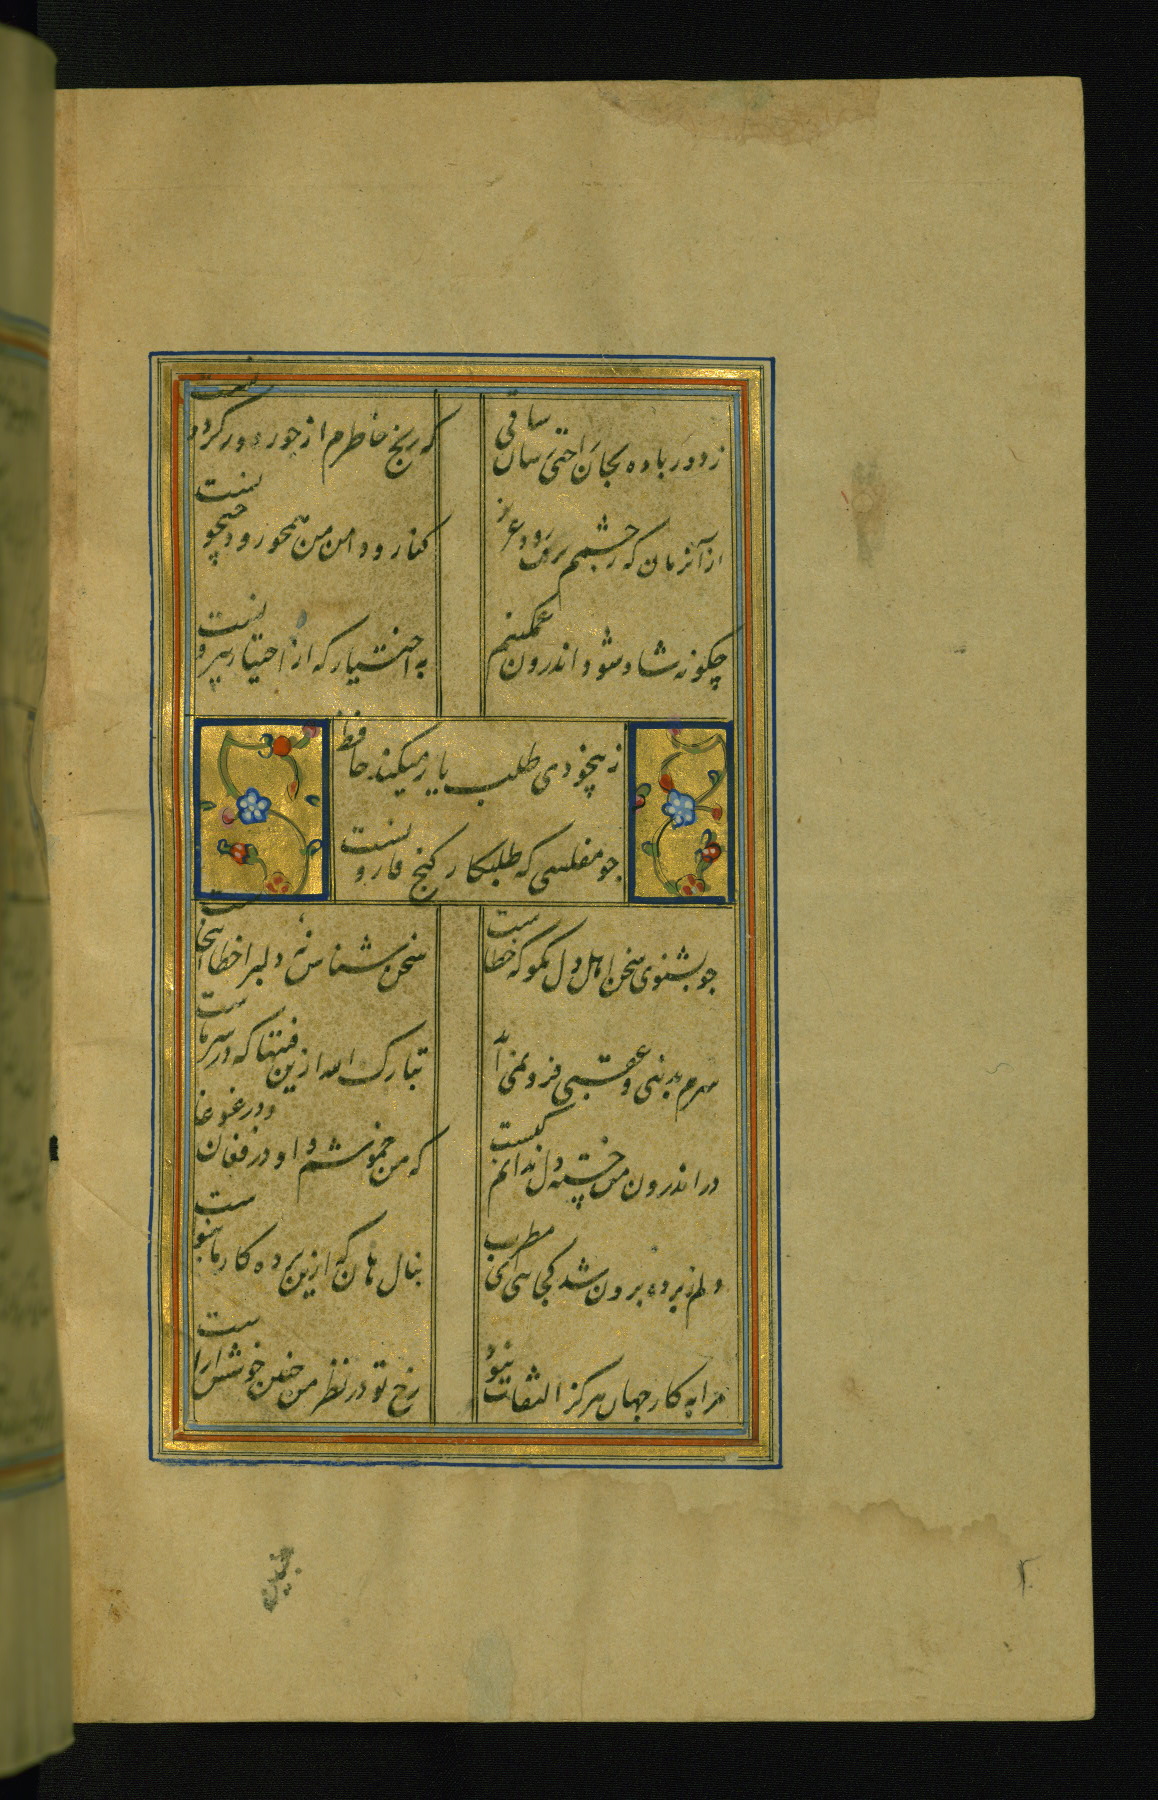 ز دور باده بجان راحتی رسان ساقی
که رنج خاطرم از جور دور گردونست
از آنزمان که ز چشمم برفت رود عزیز
کنار دامن من همچو رود جیحونست
چگونه شاد شود اندرون غمگینم
به اختیار که از اختیار بیرونست
ز بیخودی طلب یار میکند حافظ
چو مفلسی که طلبکار گنج قارونست
چو بشنوی سخن اهل دل مگو که خطاست
سخن شناس نهٔ دلبرا خطا اینجاست
سرم بدنیی و عقبی فرو نمی آید
تبارک الله ازین فتنها که در سر ماست
در اندرون من خسته دل ندانم کیست
که من خموشم و او در فغان و در غوغاست
دلم ز پرده برون شد کجائی ای مطرب
بنال هان که ازین پرده کار ما بنواست
مرا به کار جهان هرگز التفات نبود
رخ تو در نظر من چنین خوشش آراست